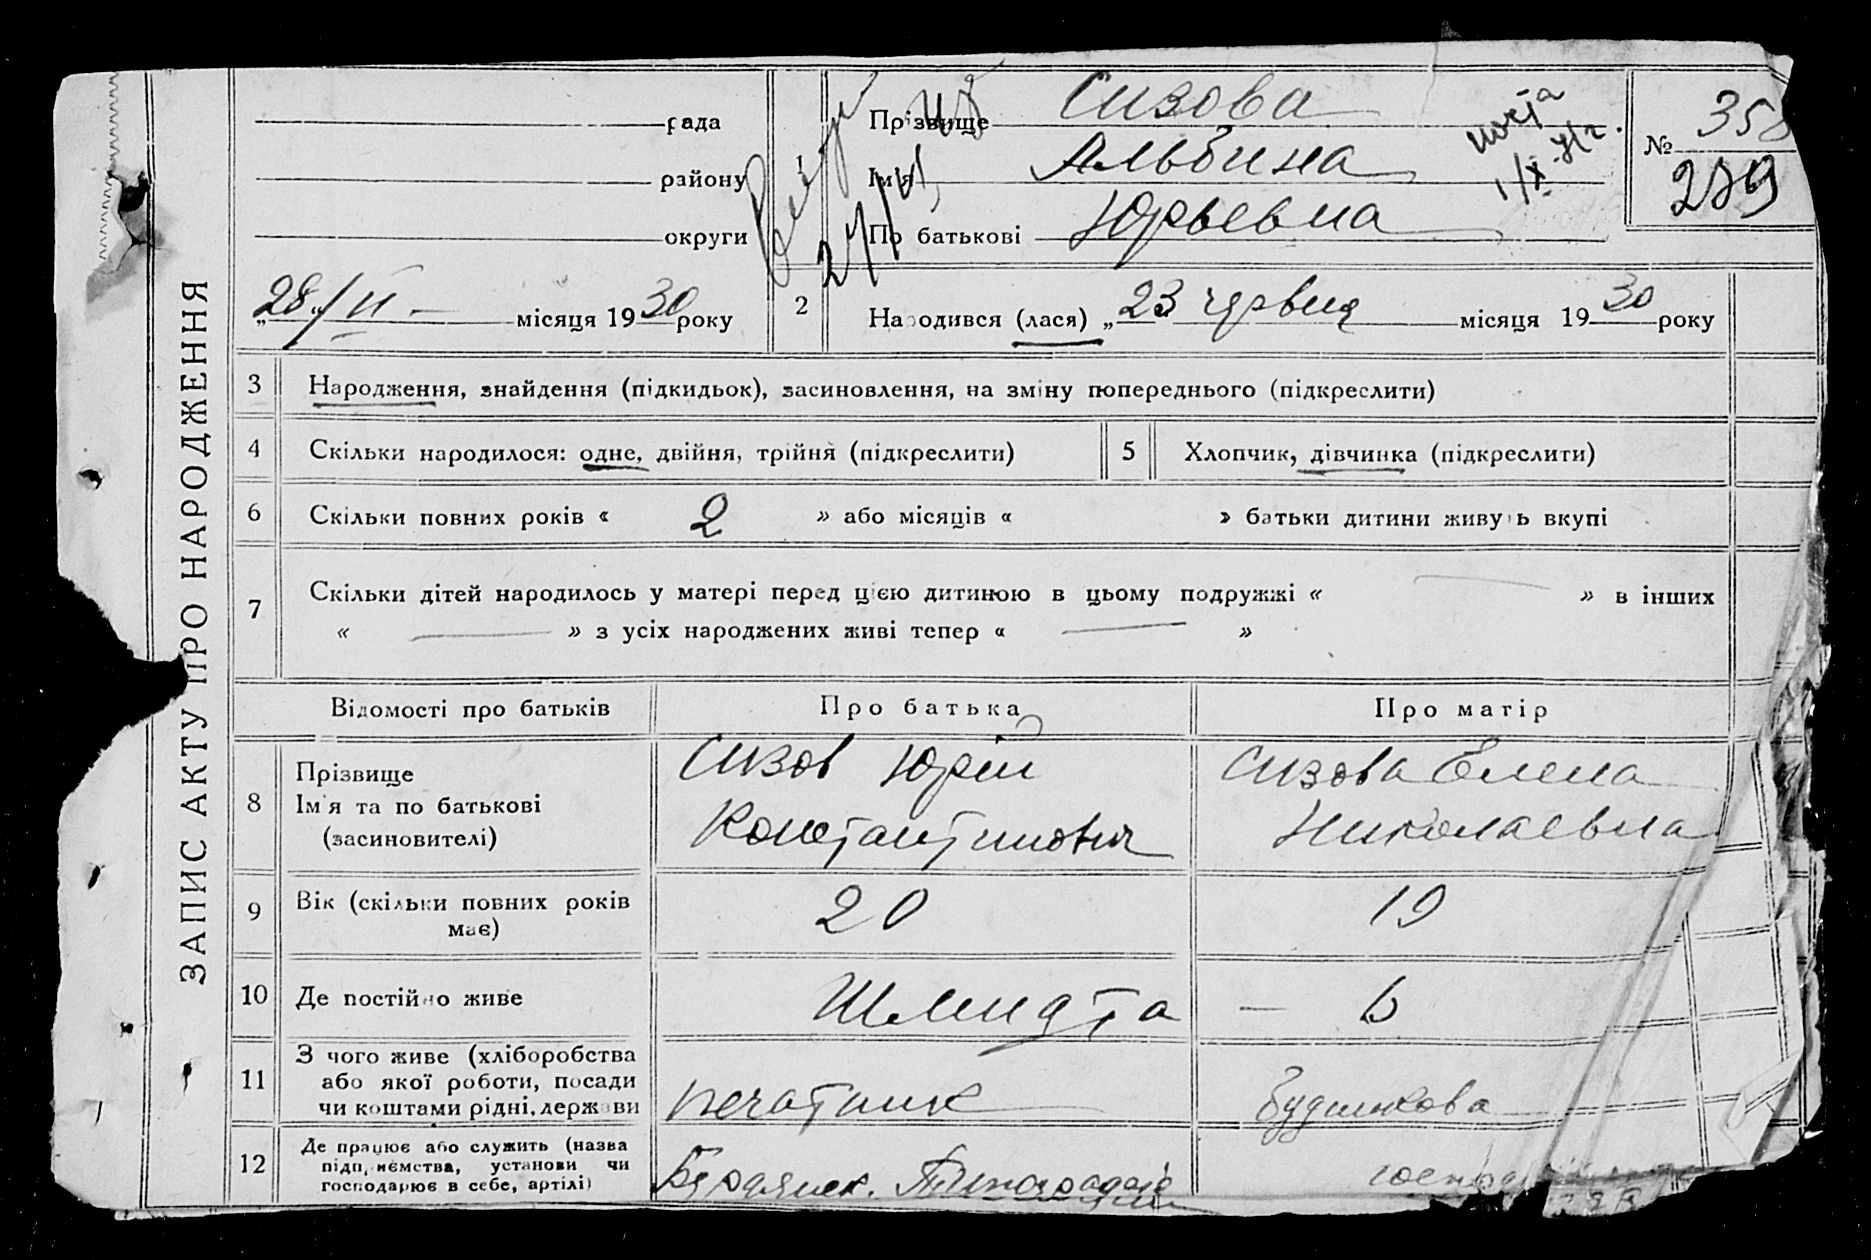 ЗАПИС АКТУ ПРО НАРОДЖЕННЯ
рада
району
округи
Прізвище Сизова
Ім'я Альбина
По батькові Юрьевна
№ 358
289
„28/VI— місяця 1930 року
2 Народився (лася) „23 червня місяця 1930 року
3 Народження, знайдення (підкидьок), засиновлення, на зміну попереднього (підкреслити)
4 Скільки народилося: одне, двійня, трійня (підкреслити)
5 Хлопчик, дівчинка (підкреслити)
6 Скільки повних років « 2 » або місяців « » батьки дитини живуть вкупі
7 Скільки дітей народилось у матері перед цією дитиною в цьому подружжі « — » в інших
« — » з усіх народжених живі тепер « — »
Відомості про батьків Про батька Про матір
8 Прізвище Ім'я та по батькові (засиновителі)
Сизов Юрій
Константинович
Сизова Елена
Николаевна
9 Вік (скільки повних років має) 20 19
10 Де постійно живе Шмидта — Б
11 З чого живе (хліборобства або якої роботи, посади чи коштами рідні, держави
печатник
12 Де працює або служить (назва підприємства, установи чи господарює в себе, артілі)
Бердянск.